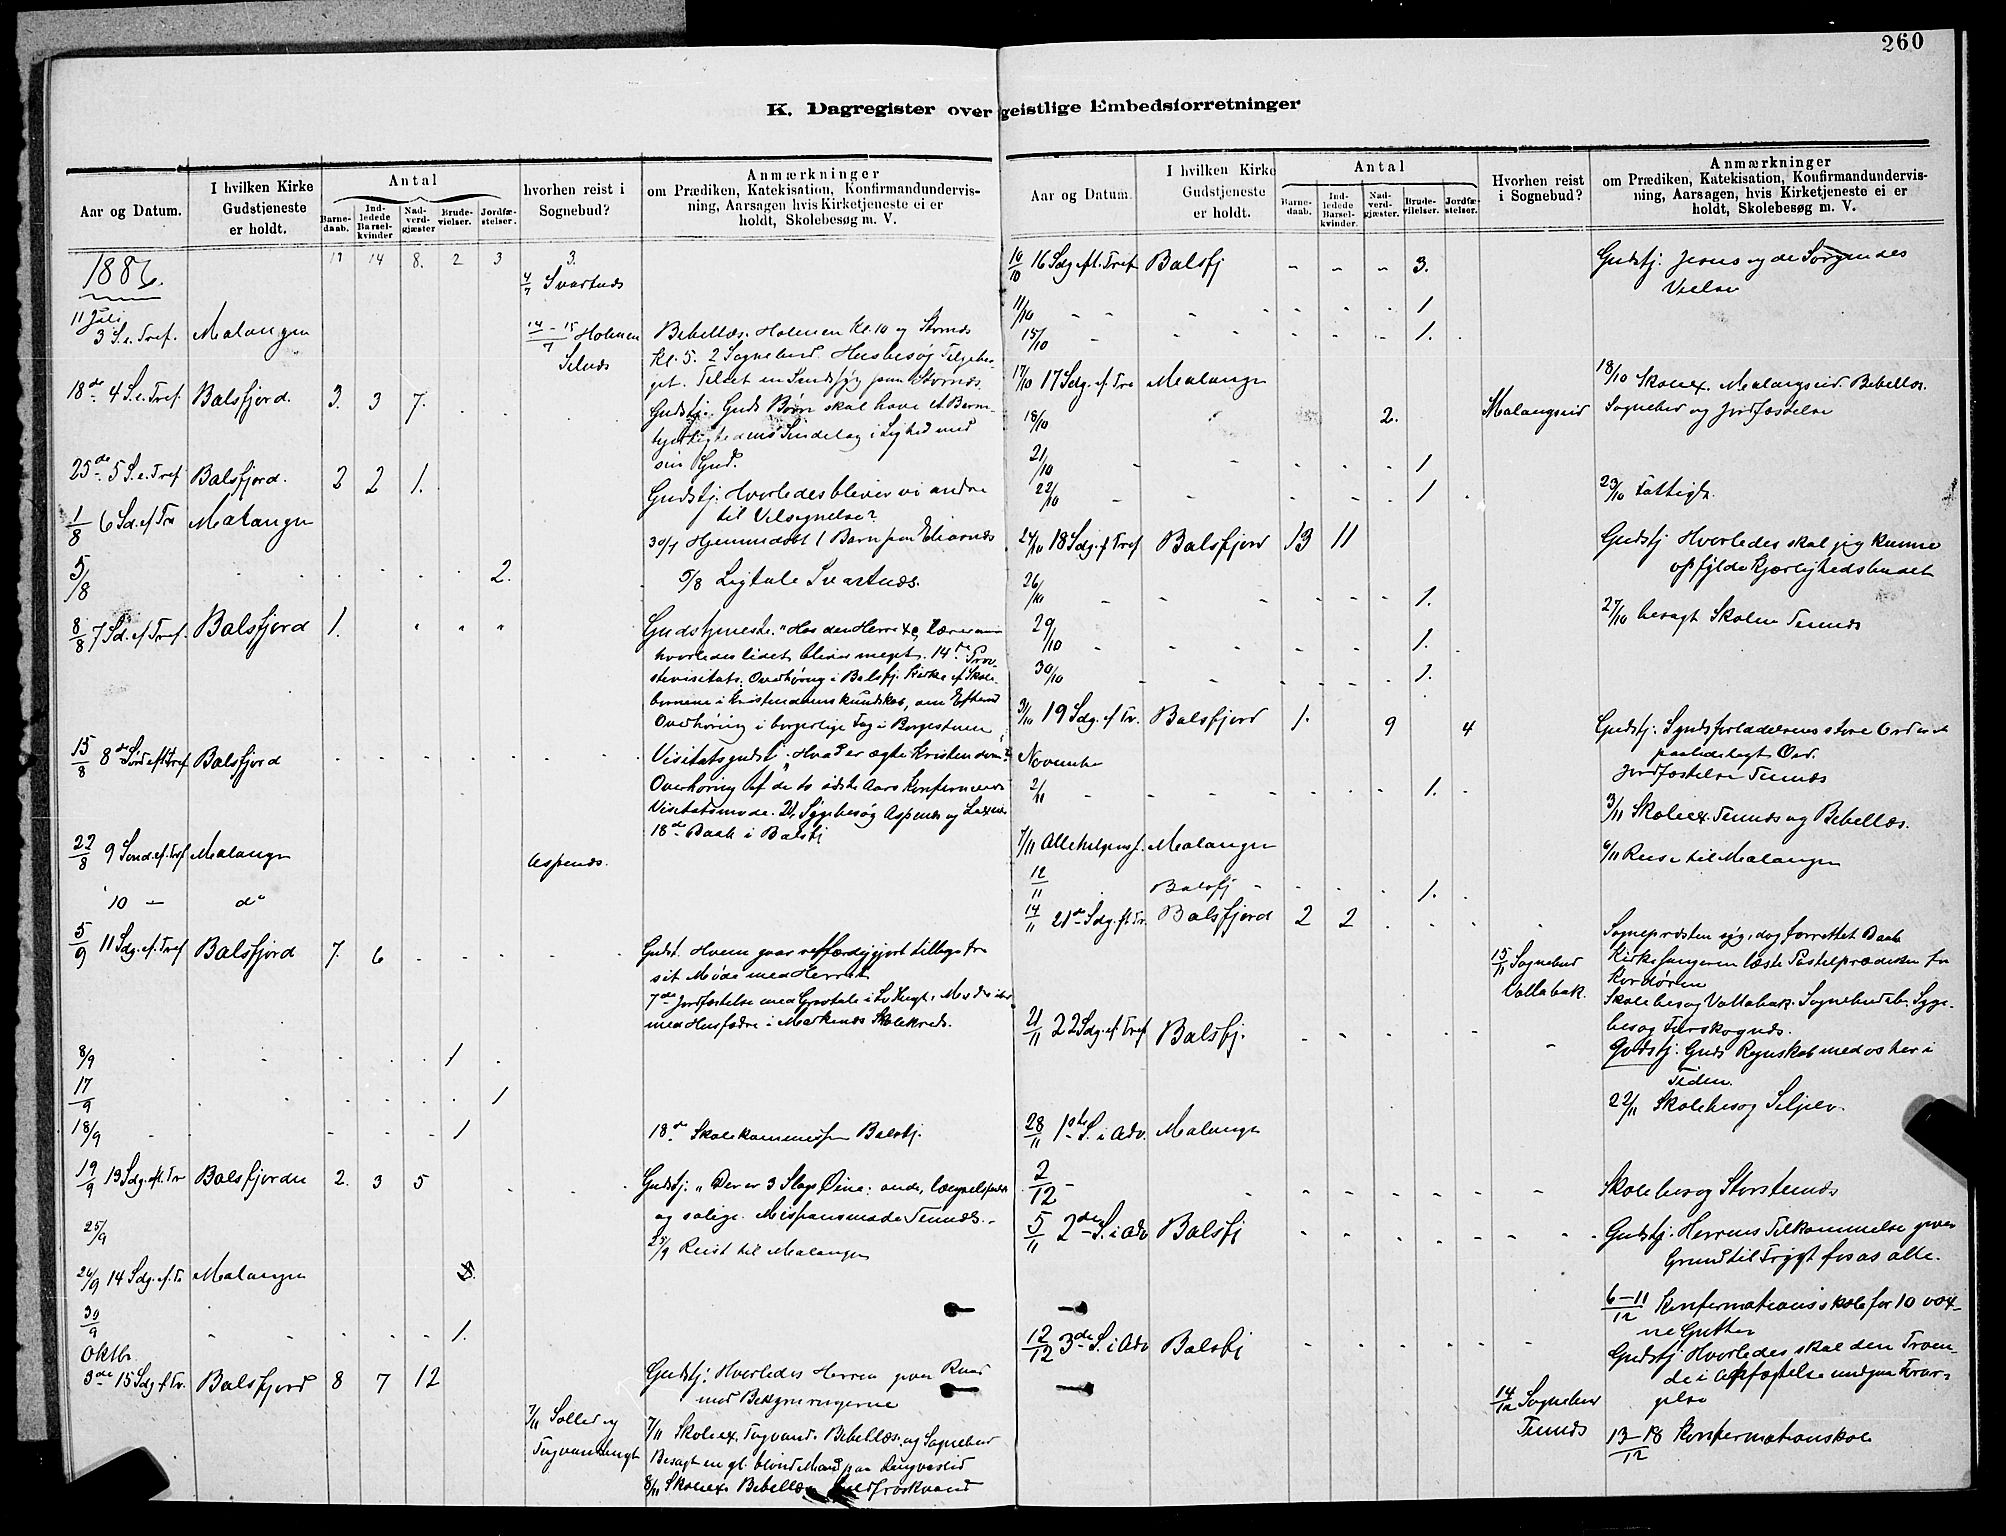 260
K. Dagregister over geistlige Embedsforretninger
Aar og Datum.
I hvilken Kirke
Gudstjeneste
er holdt.
Antal
Barne-
daab.
Ind-
ledede
Barsel-
kvinder
Nad-
verd-
gjæster
Brude-
vielser.
Jordfæ-
stelser.
hvorhen reist i
Sognebud?
Anmærkninger
om Prædiken, Katekisation, Konfirmandundervis-
ning, Aarsagen hvis Kirketjeneste ei er
holdt, Skolebesøg m. V.
1886. 14 8. 2 3 3.
4/7 Svartnes
11 Juli
3 S. e. Tref. Malangen 14-15/7 Holmen Bibellæs. Holmen Kl. 10 og
Kl. 5. 2 Sognebud. Husbesøg
18de 4 S. e. Tref. Balsfjord. 3. 3 7.
Gudstj. Guds Børn skal have et Barm-
hjertighedens Sindelag i Lighed med
sin Gud.
25de 5 S. e. Tref Balsfjord. 2 2 1. Gudstj. Hvorledes bliver vi andre
til Velsignelse?
1/8 6 Sd. ef. Tre Malangen
Hjemmedøbt 1 Barn
5/8 2. 5/8 Ligtale Svartnes.
8/8 7 Sd. ef. Tref. Balsfjord 1. Gudstjeneste. "Hos den Herre
hvorledes lidet bliver meget. 14de Prov-
stevisitats. Overhøring i Balsfj. Kirke af Skole-
børnene i Kristendomskundskab, om Efterm
Overhøring i borgerlige Fag i Borgestuen
15/8 8de Balsfjord Visitatsgudst. "Hvad er ægte Kristendom?
Overhøring af de to sidste Aars Konfirmerede
Visitatsmøde. Sygebesøg Aspenes og
18de Baab i Balsfj
22/8 9 Sønd. ef. Tref Malangen Aspenes.
10 — do
5/9 11 Sdg. ef. Tref Balsfjord 7. 6 Gudst. Hvem gaar retfærdiggjort tilbage fra
sit Møde med Herren
7de Jordfæstelse med Gravtale i
med Husfædre i Markenes Skolekreds.
8/9 1
17/9 1
18/9 1 18de Skolekommission Balsfj.
19/9 13 Sdg. eft. Tr Balsfjorden 2. 3 5 Gudstj: "Der er 3 Slags Øine: onde,
og salige. Missionsmøde Tennes.
25/9 25/9 Reist til Malangen
26/9 14 Sdg. ef. Tr Malangen
30/9 1.
Oktbr.
3de 15 Sdg. f Tr. Balsfjord 8 7 12 Gudstj: Hvorledes Herren giver Raad
mod Bekymringerne
7/11 Skoleex. Tagvand. Bibellæs. og Sognebud
Besøgt en gl. blind Mand paa
8/11 Skoleex. Bibellæs.
Aar og Datum.
I hvilken Kirke
Gudstjeneste
er holdt.
Antal
Barne-
daab.
Ind-
ledede
Barsel-
kvinder.
Nad-
verd-
gjæster.
Brude-
vilelser.
Jordfæ-
stelser.
Hvorhen reist
i Sognebud?
Anmærkninger
om Prædiken, Katekisation, Konfirmandundervis-
ning, Aarsagen, hvis Kirketjeneste ei er
holdt, Skolebesøg m. V.
10/10 16 Sdg. eft. Tref Balsfj 3. Gudstj. Jesus og de Sørgendes
11/10 1
15/10 1.
17/10 17 Sdg. ef. Tre Malangen 18/10 Skoleex. Malangseid. Bibellæs.
18/10 2. Malangseid Sognebud og Jordfæstelse
21/10 1
22/10 1 23/10 Fattigk.
24/10 18 Sdg. f Tref Balsfjord 13 11 Gudstj Hvorledes skal jeg kunne
opfylde Kjærlighedsbudet
26/10 1.
27/10 besøgt Skolen Tennes
29/10 1.
30/10 1.
31/10 19 Sdg. ef Tr. Balsfjord 1. 9 4 Gudstj. Syndsforladelsens store Ord er et
paalideligt Ord.
Jordfæstelse Tennes
November
2/11 1.
3/11 Skoleex. Tennes og Bibellæs.
7/11 Allehelgensf. Malangen 6/11 Reise til Malangen
12/11 Balsfj 1.
14/11 21de Sdg. ft. Tr. Balsfjord 2 2 Sognepræsten syg, dog forrettet Daab
Kirkesangeren læste Postelprædiken fra
Kordøren
15/11 Sognebud
Vollabak. Skolebesøg Vollabak. Sognebud sb. Syge-
besøg
21/11 22 Sdg. ef. Tref Balsfj. Gudstj. Guds Regnskab med os her i
Tiden.
22/11 Skolebesøg Seljelv.
28/11 1ste S. i Adv. Malangen
2/12 Skolebesøg Storstennes
5/11 2den S. i Adv Balsfj Gudstj. Herrens Tilkommelse giver
Grund til Frygt for os alle.
6-11/12 Konfirmationsskole for 10 vox-
ne Gutter
12/12 3die S. i Adv Balsfj Gudstj Hvorledes skal den Troen-
de i Anfægtelse undgaa Forar-
gelse
14/12 Sognebud
Tennes
13-18/12 Konfirmationskole